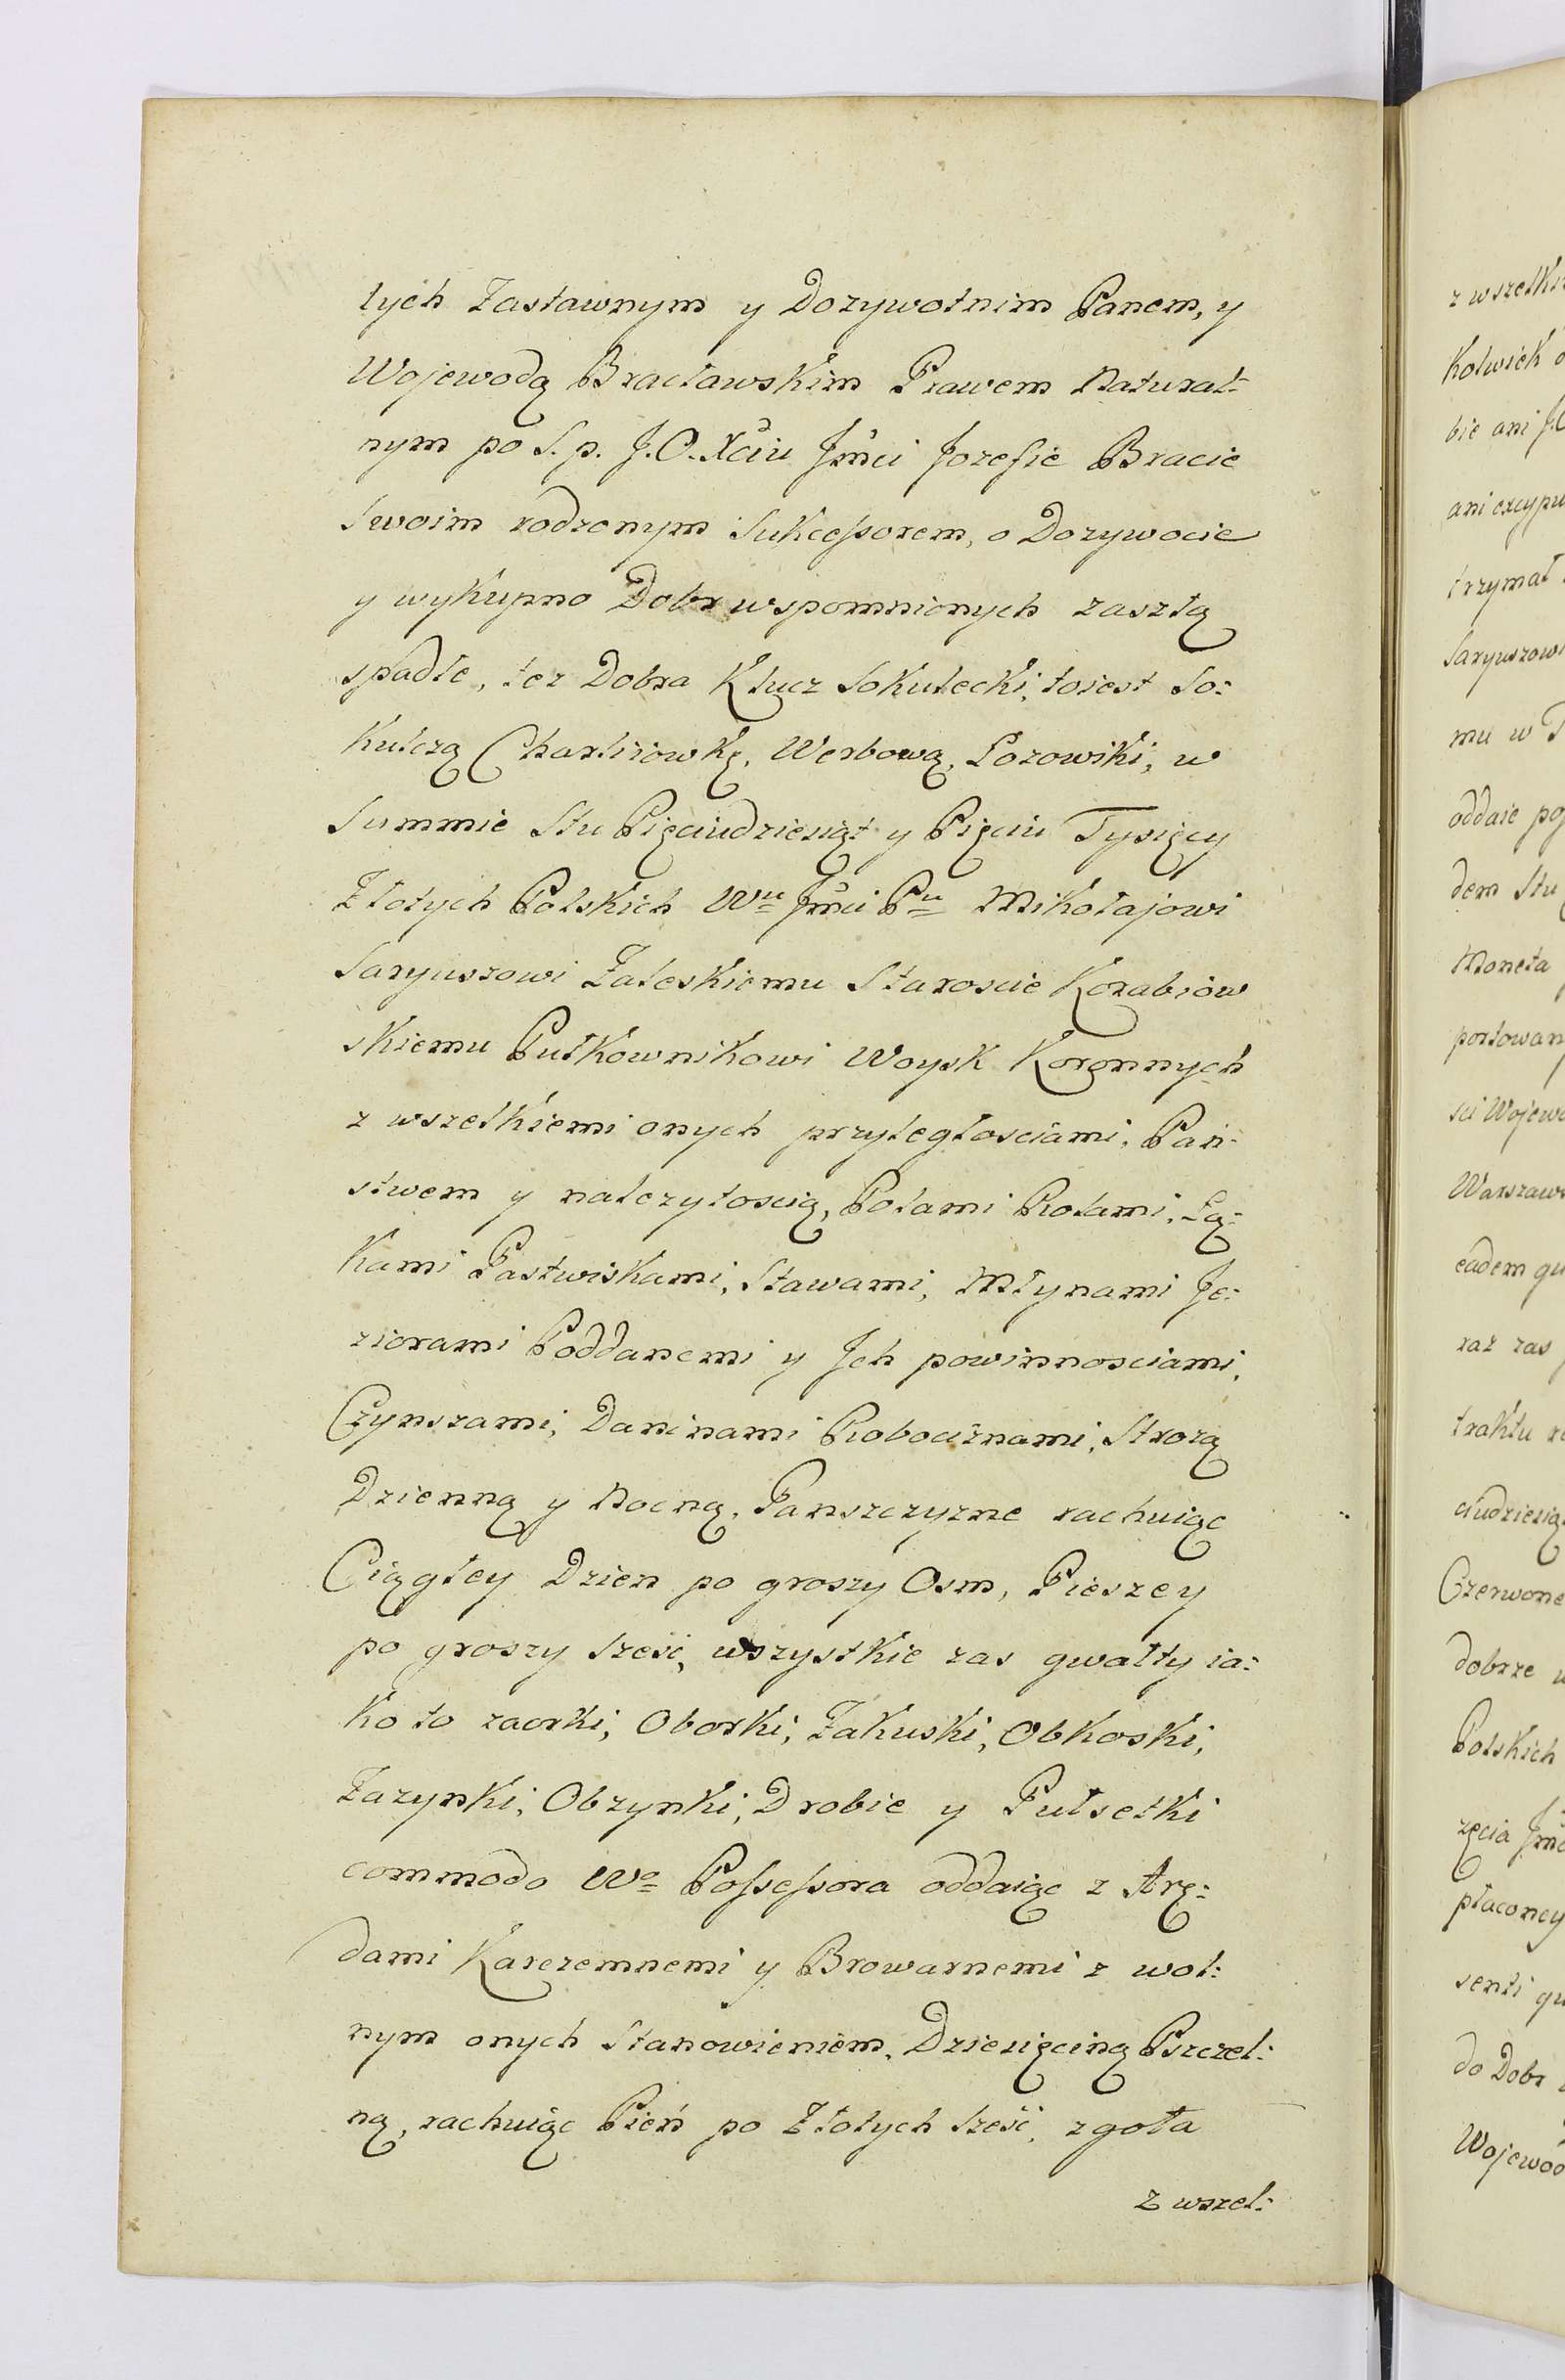 tych Zastawnym y Dozywotnim Panem, y
Wojewodą Bracławskim Prawem Natural:
nym po S. p. J. O. Xciu Jmci Jozefie Bracie
Swoim rodzonym Sukcessorem, o Dozywocie
y wykupno Dobr wspomnionych zaszłą
spadłe, tez Dobra Klucz Sokulecki, toiest So:
kulczą Charliiowkę, Werbową, Lozowiki, w
Summie Stu Pięciudziesiąt y Pięciu Tysięcy
Złotych Polskich Wu Jmci Pu Mikołajowi
Saryuszowi Zaleskiemu Staroscie Korabiow
skiemu Pułkownikowi Woysk Koronnych
z wszelkiemi onych przyległosciami, Pań:
stwem y nalezytoscią, Polami Rolami, Łą:
kami Pastwiskami, Stawami, Młynami Je:
ziorami Poddanemi y Jch powinnosciami,
Czynszami, Daninami Robociznami, Strozą
Dzienną y Nocną, Panszczyzne rachuiąc
Ciągłey Dzien po groszy Osm, Pieszey
po groszy Sześć, wszystkie zas gwałty ia:
ko to zaorki, Oborki, Zakuski, Obkoski,
Zazynki, Obzynki, Drobie y Pułsetki
commodo Wo Possessora oddaiąc z Arę:
dami Karczemnemi y Browarnemi z wol:
nym onych Stanowieniem, Dziesięciną Pszczel:
ną, rachuiąc Pień po Złotych Sześć, zgoła
z wszel:
z wszelki
kolwiek
bie ani J.O
ani excypu
trzymał
Saryuszowi
mu w
oddaie
dem Stu
Moneta
portowan
sci Wojew
Warszaw
eadem qu
raz zas
traktu
ciudziesią
Czerwone
dobrze
Polskich
zęcia Jmc
płaconey
senti
do Dobr
Wojewod